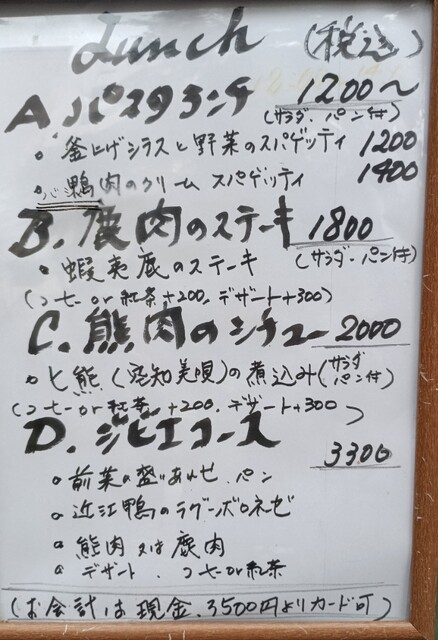 Lunch (税込)
A. パスタランチ 1200〜
(サラダ、パン付)
・釜上げシラスと野菜のスパゲッティ 1200
・鴨肉のクリームスパゲッティ 1400
B. 鹿肉のステーキ 1800
・蝦夷鹿のステーキ (サラダ・パン付)
(コーヒー or 紅茶 +200, デザート+300)
C. 熊肉のシチュー 2000
・ヒ熊 (空知美唄)の煮込み (サラダ パン付)
(コーヒー or 紅茶 +200, デザート +300)
D. ジビエコース 3300
・前菜の盛りあわせ、パン
・近江鴨のラグーボロネーゼ
・熊肉 又は 鹿肉
・デザート、コーヒー or 紅茶
(お会計は 現金、3500円よりカード可)